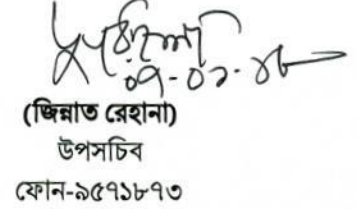 ০৭-০১-১৮
(জিন্নাত রেহানা)
উপসচিব
ফোন-৯৫৭১৮৭৩